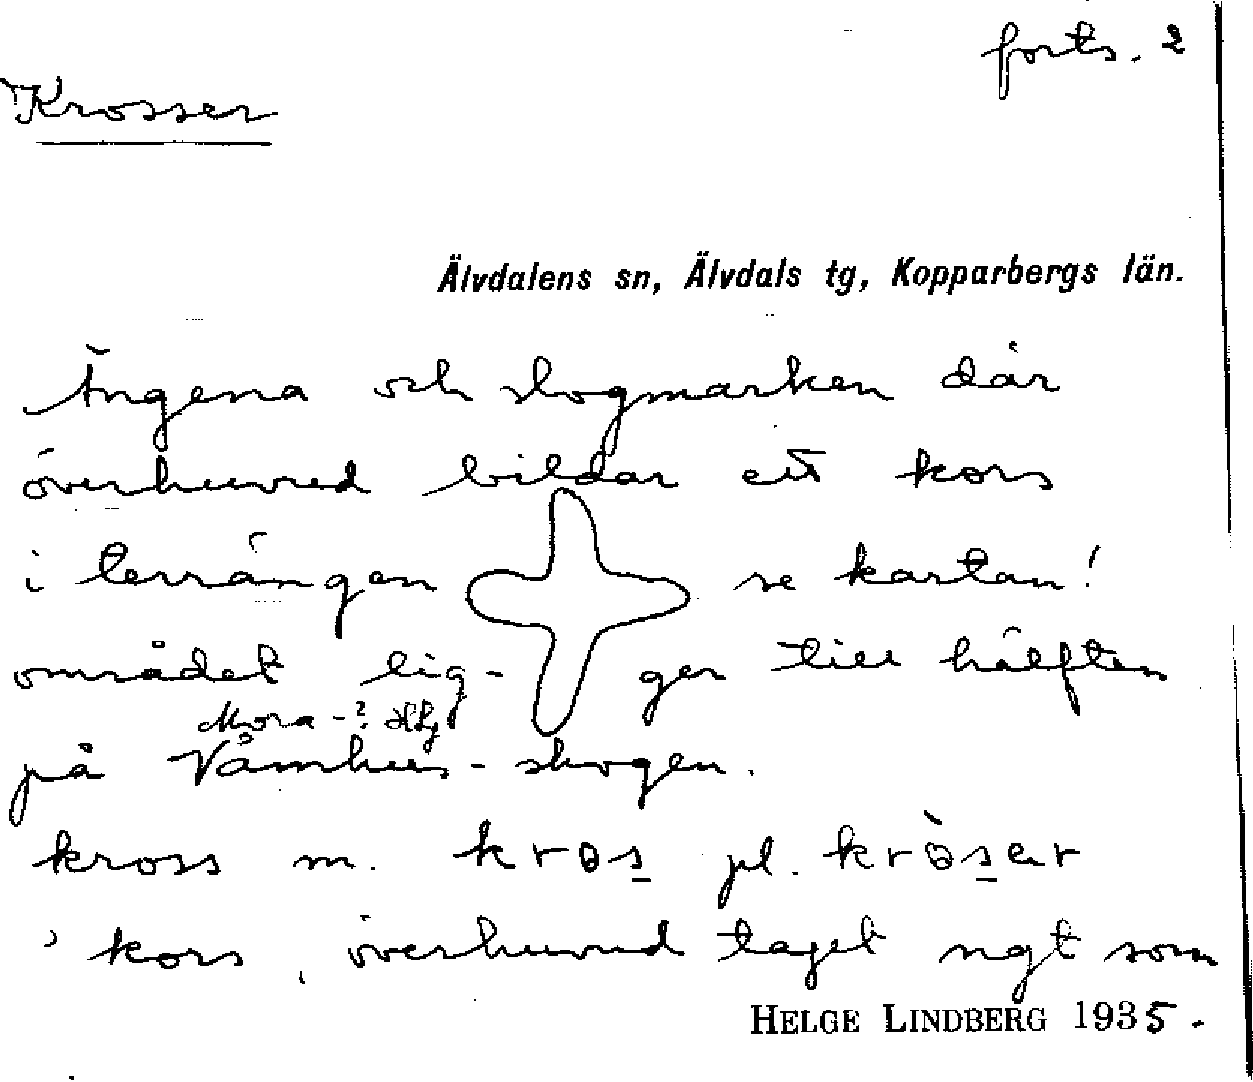 forts. 2
Krosser
Älvdalens sn, Älvdals tg, Kopparbergs län.
Ängena och skogmarken där
överhuvud bildar ett kors
i terrängen se kartan!
området lig- ger till hälften
Mora-?
på Våmhus-skogen.
kross m. krɵs pl. krɵ̀ser
' kors, överhuvud taget ngt som
HELGE LINDBERG 1935.